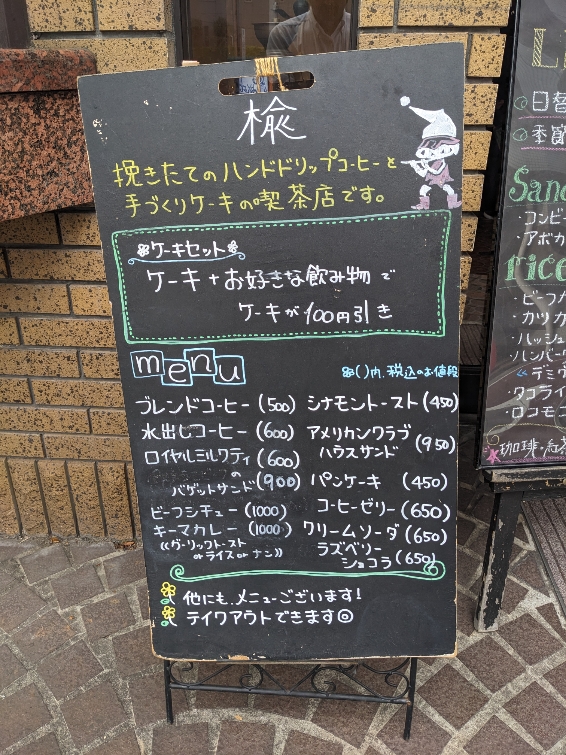 楡
挽きたてのハンドドリップコーヒーと
手づくりケーキの喫茶店です。
ケーキセット
ケーキ+お好きな飲み物で
ケーキが100円引き
menu
※( )内、税込のお値段
ブレンドコーヒー (500)
水出しコーヒー (600)
ロイヤルミルクティ (600)
の
バゲットサンド (900)
ビーフシチュー (1000)
キーマカレー (1000)
《ガーリックトースト
orライスorナン》
シナモントースト (450)
アメリカンクラブ
ハウスサンド (950)
パンケーキ (450)
コーヒーゼリー (650)
クリームソーダ (650)
ラズベリー
ショコラ (650)
他にも、メニューございます!
テイクアウトできます◎
日替
季節
San
・コンビー
アボカ
rice
・ビーフカ
・カツカ
・ハッシュ
・ハンバー
《デミ
・タコライ
・ロコモコ
珈琲・紅茶